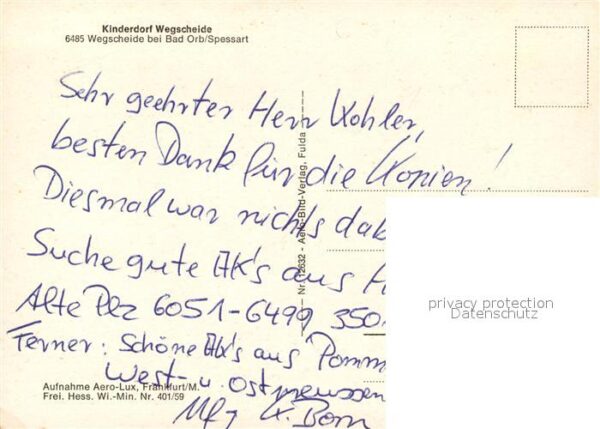 Kinderdorf Wegscheide
6485 Wegscheide bei Bad Orb/Spessart
Sehr geehrter Herr Kohler,
besten Dank für die Kopien!
Diesmal war nichts dab
Suche gute AK's aus H
Alte Plz 6051-6499, 350
Ferner: Schöne AK's aus Pomm
West- u. Ostpreussen
Mfg K. Born
Nr. 12632 - Aero-Bild-Verlag, Fulda
Aufnahme Aero-Lux, Frankfurt/M.
Frei. Hess. Wi.-Min. Nr. 401/59
privacy protection
Datenschutz